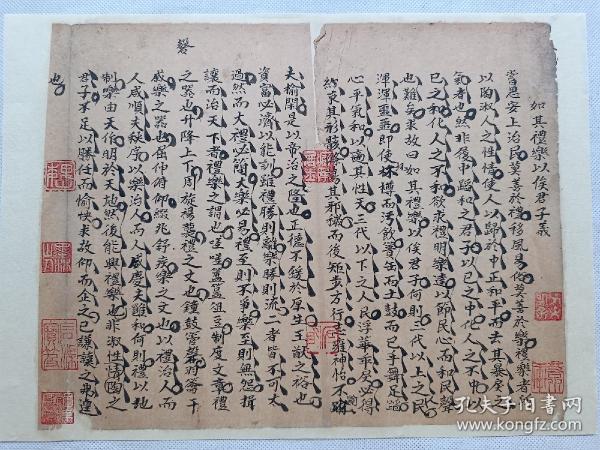 如其禮樂以俟君子義
嘗思安上治民莫善於禮移風易俗莫善於樂禮樂者所
以陶淑人之性情使人以歸於中正和平而去其暴戾之
氣者也然非後中蹈和之君子以己之中化人之不中
己之和化人之不和欲求禮明樂達以節民心而和民聲
也難矣求故曰如其禮樂以俟君子何則三代以上之民
渾渾噩噩即使杯樽而污飲簣缶而土鼓而已手舞足蹈
心平氣和以適其性天三代以下之人民浮華乎
束其形骸其邪穢而後矩步方行志雍神怡
夫揄閑是以帝治之隆也正德不緩於厚生王猷之裕也
資富必濟以能訓雖禮勝則離樂勝則流二者皆不可太
過然而大禮必簡大樂必易禮至則不爭樂至則無怨揖
讓而治天下者禮樂之謂也簠簋俎豆制度文章禮
之器也升降上下周旋裼襲禮之文也鐘鼓管羽籥干
戚樂之器也屈伸俯仰綴兆舒疾樂之文也以禮治人而
人咸順夫秩序以樂治人而人咸慶夫雖和何則禮以地
制樂由天作明於天地然後能興禮樂也非淑性情陶之
君子不足以勝任而愉快求故仰而企之已謙讓之弗遑
也
孔夫子旧书网
www.kongfz.com